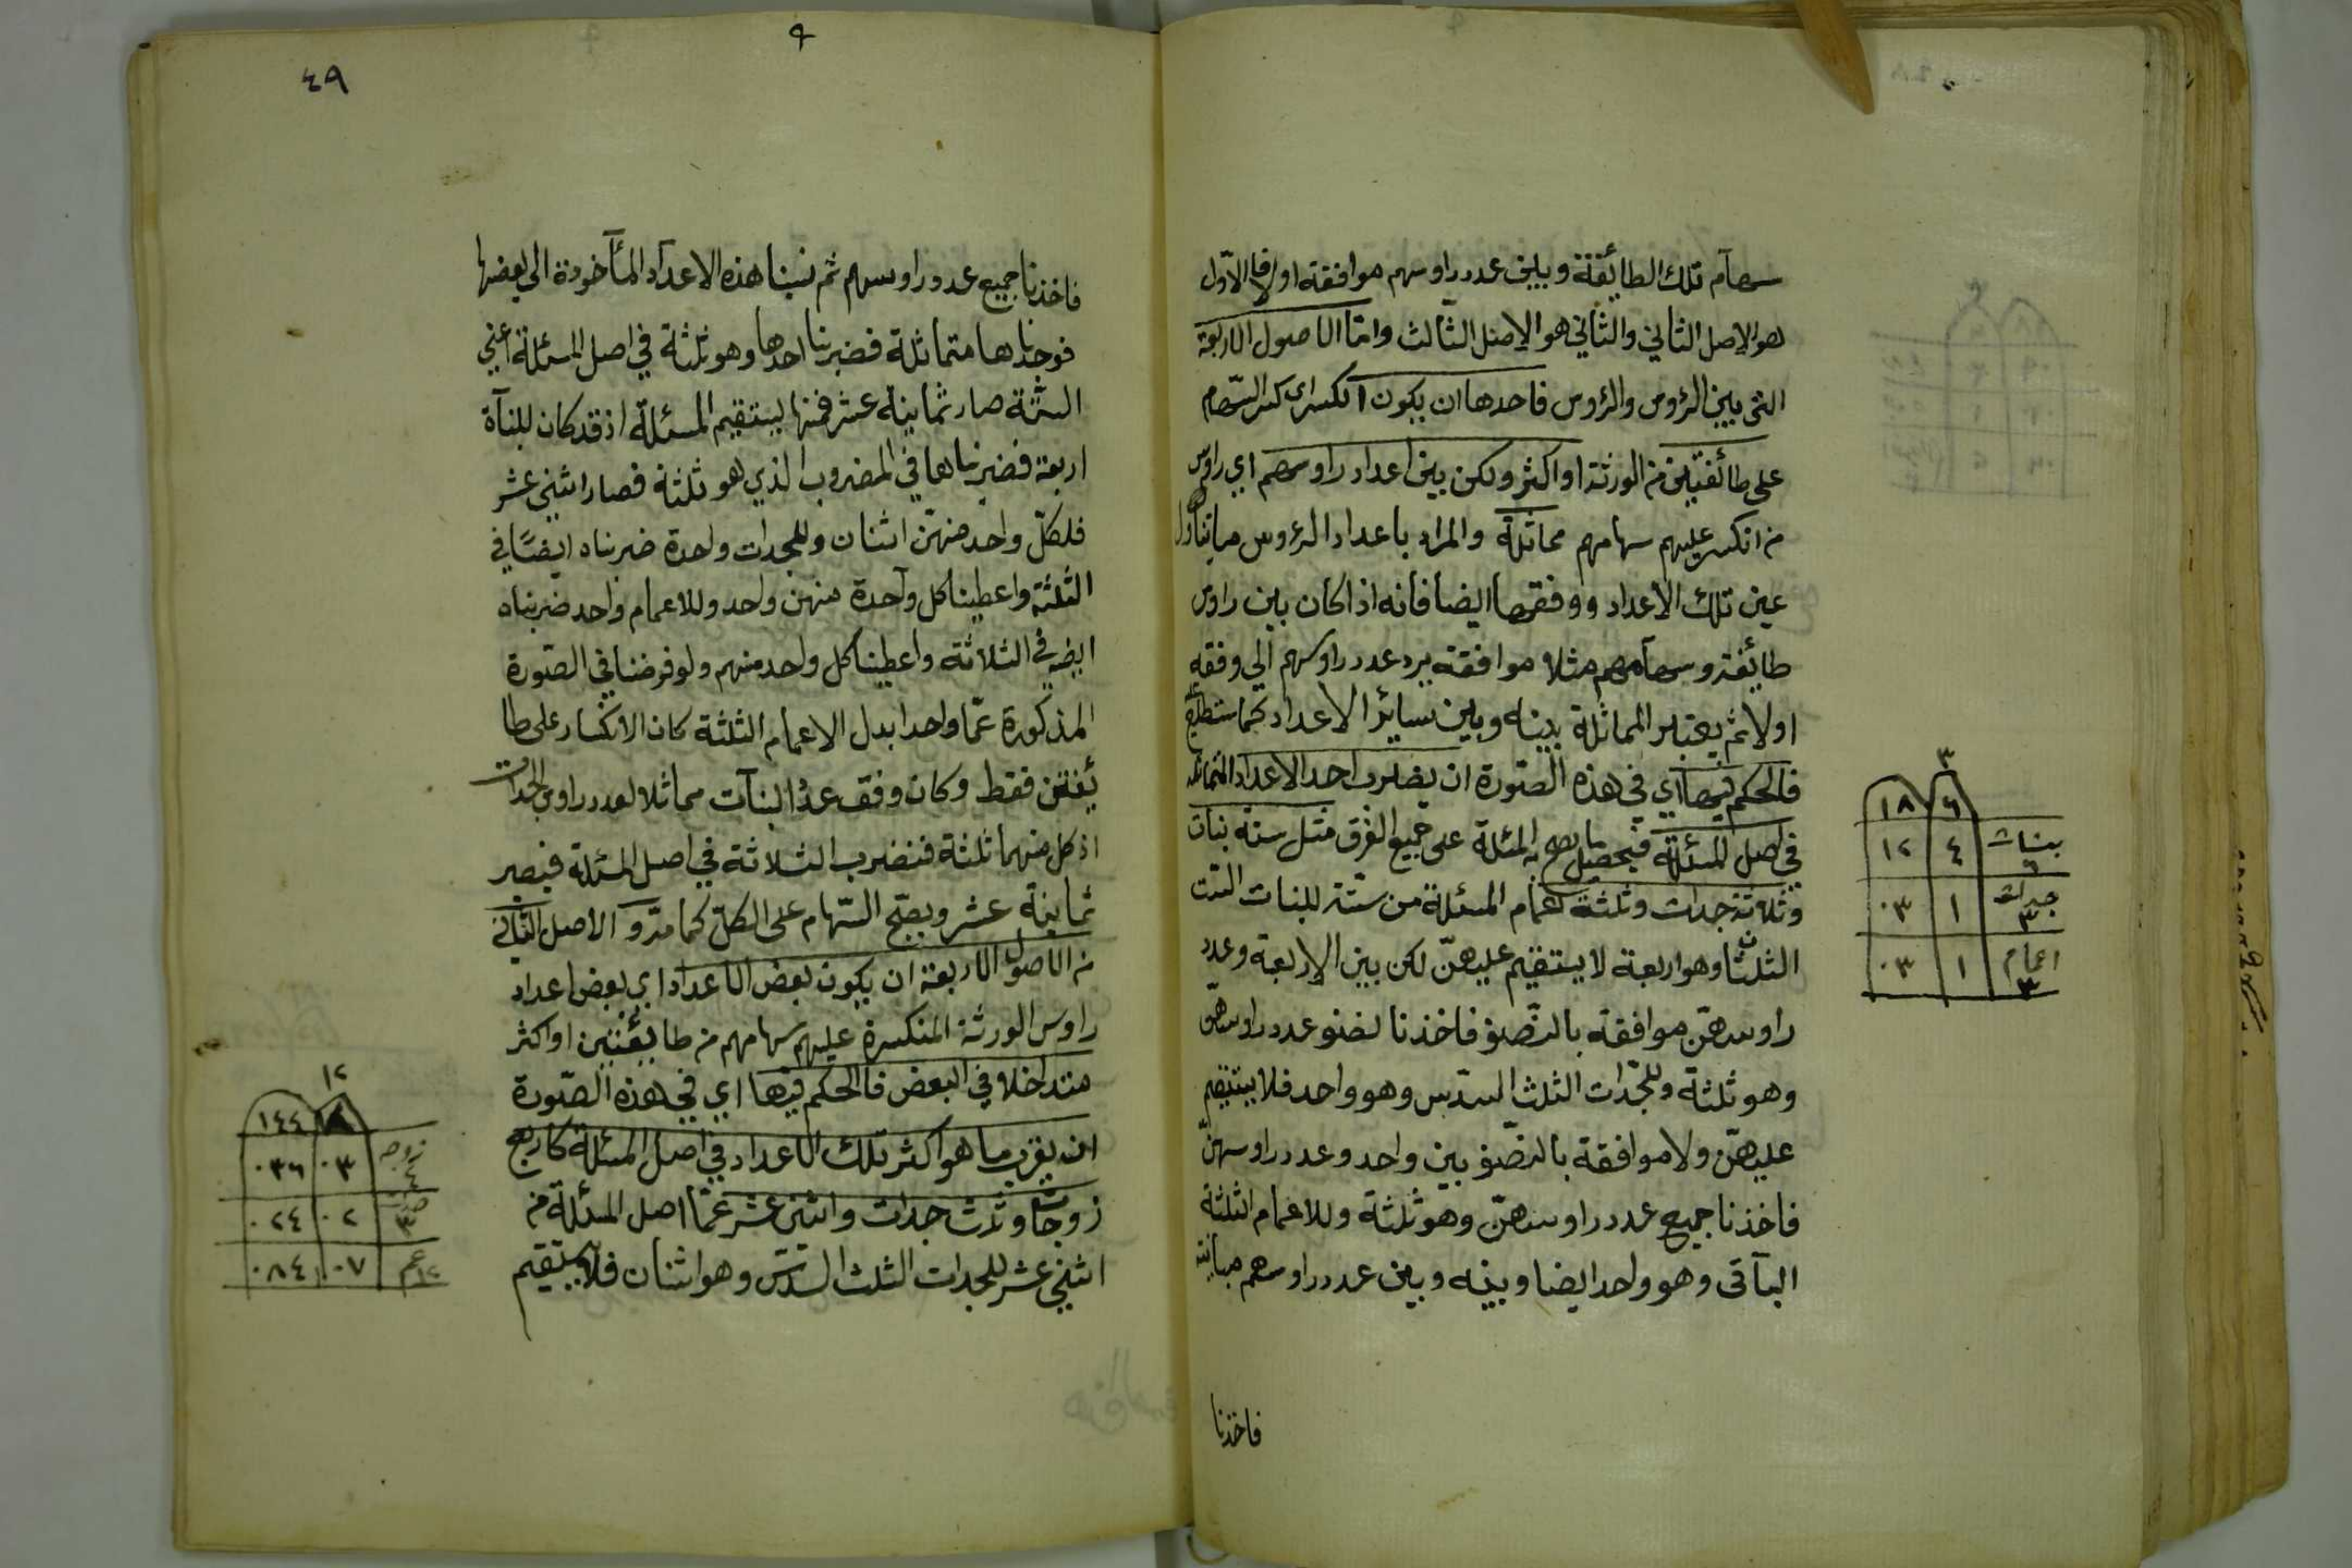 سهام تلك الطائفة وبين عدد راوسهم موافقة اولا فالاول
هو الاصل الثاني والثاني هو الاصل الثالث واما الاصول الاربعة
التي بين الرؤس والرؤس فاحدها ان يكون انكسراى كسر السهام
على طائفتين من الورثة او اكثر ولكن بين اعداد راوسهم اي راوس
من انكسر عليهم سهامهم مماثلة والمراد باعداد الرؤوس ما يتناول
عين تلك الاعداد ووفقها ايضا فانه اذا كان بين راوس
طائفة وسهامهم مثلا موافقة يرد عدد راوسهم الى وفقه
اولا ثم يعتبر المماثلة بينه وبين سائر الاعداد كما ستطلع
فالحكم فيها اي في هذه الصورة ان يضرب احد الاعداد المتماثلة
في اصل المسئلة فيحصل ما يصح به المسئلة على جميع الفرق مثل ستة بنات
وثلاثة جدات وثلثة اعمام المسئلة من ستة للبنات الست
الثلثان وهو اربعة لا يستقيم عليهن لكن بين الاربعة وعدد
راوسهن موافقة بالنصف فاخذنا نصف عدد راوسهن
وهو ثلثة وللجدات الثلث السدس وهو واحد فلا يستقيم
عليهن ولا موافقة بالنصف بين واحد وعدد راوسهن
فاخذنا جميع عدد راوسهن وهو ثلثة وللاعمام الثلثة
الباقى وهو واحد ايضا وبينه وبين عدد راوسهم مباينة
فاخذنا
٣
٦ ١٨
بنات ٦ ٤ ١٢
جدات ٣ ١ ٠٣
اعمام ٣ ١ ٠٣
٤٩
فاخذنا جميع عدد راوسهم ثم نسبنا هذه الاعداد المأخوذة الى بعضها
فوجدناها متماثلة فضربنا احدها وهو ثلثة في اصل المسئلة اعني
الستة صار ثمانية عشر فمنها يستقيم المسئلة اذ قد كان للبنات
اربعة فضربناها في المضروب الذي هو ثلثة فصار اثنى عشر
فلكل واحد منهن اثنان وللجدات واحدة ضربناه ايضا في
الثلثة واعطينا كل واحدة منهن واحد وللاعمام واحد ضربناه
ايضا في الثلاثة واعطينا كل واحد منهم ولو فرضنا في الصورة
المذكورة عما واحدا بدل الاعمام الثلثة كان الانكسار على طا
ئفتين فقط وكان وفق عدد البنات مماثلا لعدد راوس الجدات
اذ كل منهما ثلثة فنضرب الثلاثة في اصل المسئلة فيصير
ثمانية عشر ويصح السهام على الكل كما مر والاصل الثاني
من الاصول الاربعة ان يكون بعض الاعداد اي بعض اعداد
راوس الورثة المنكسرة عليهم سهامهم من طائفتين او اكثر
متداخلا في البعض فالحكم فيها اي في هذه الصورة
ان يضرب ما هو اكثر تلك الاعداد في اصل المسئلة كاربع
زوجات وثلث جدات واثنى عشر عما اصل المسئلة من
اثنى عشر للجدات الثلث السدس وهو اثنان فلا يستقيم
١٢
١٤٤
زوجه ٤ ٠٣ ٠٣٦
٣ ٠٢ ٠٢٤
عم ١٢ ٠٧ ٠٨٤